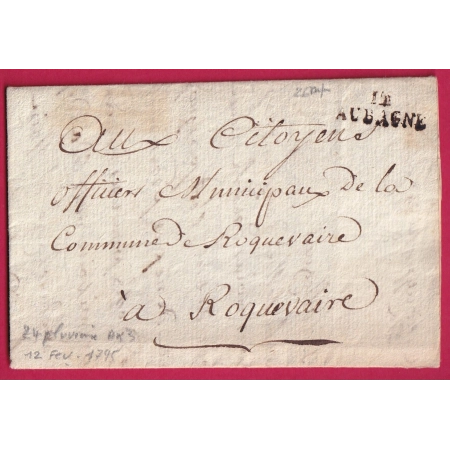 12
AUBAGNE
Aux Citoyens
officiers Municipaux de la
Commune de Roquevaire
à Roquevaire
24 pluviose An 3
12 Fev. 1795